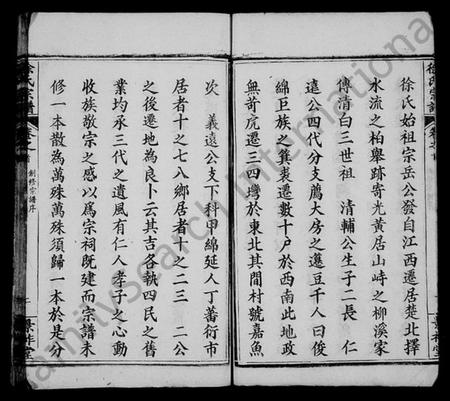 徐氏宗譜
徐氏始祖宗岳公發自江西遷居楚北擇
水流之柏舉跡寄光黃居山峙之柳溪家
傳清白三世祖 清輔公生子二長 仁
遠公四代分支薦大房之邅豆千人曰俊
綿巨族之箕裘遷數十戶於西南此地政
無苛虎遷三四灣於東北其間村號嘉魚
次 義遠公支下科甲綿延人丁蕃衍市
居者十之七八鄉居者十之二三 二公
之後遷地為良卜云其吉各執四民之舊
業均承三代之遺風有仁人孝子之心動
收族敬宗之感以為宗祠既建而宗譜未
修一本散為萬殊萬殊須歸一本於是分
徐氏宗譜
卷之首
創修宗譜序
familysearch international